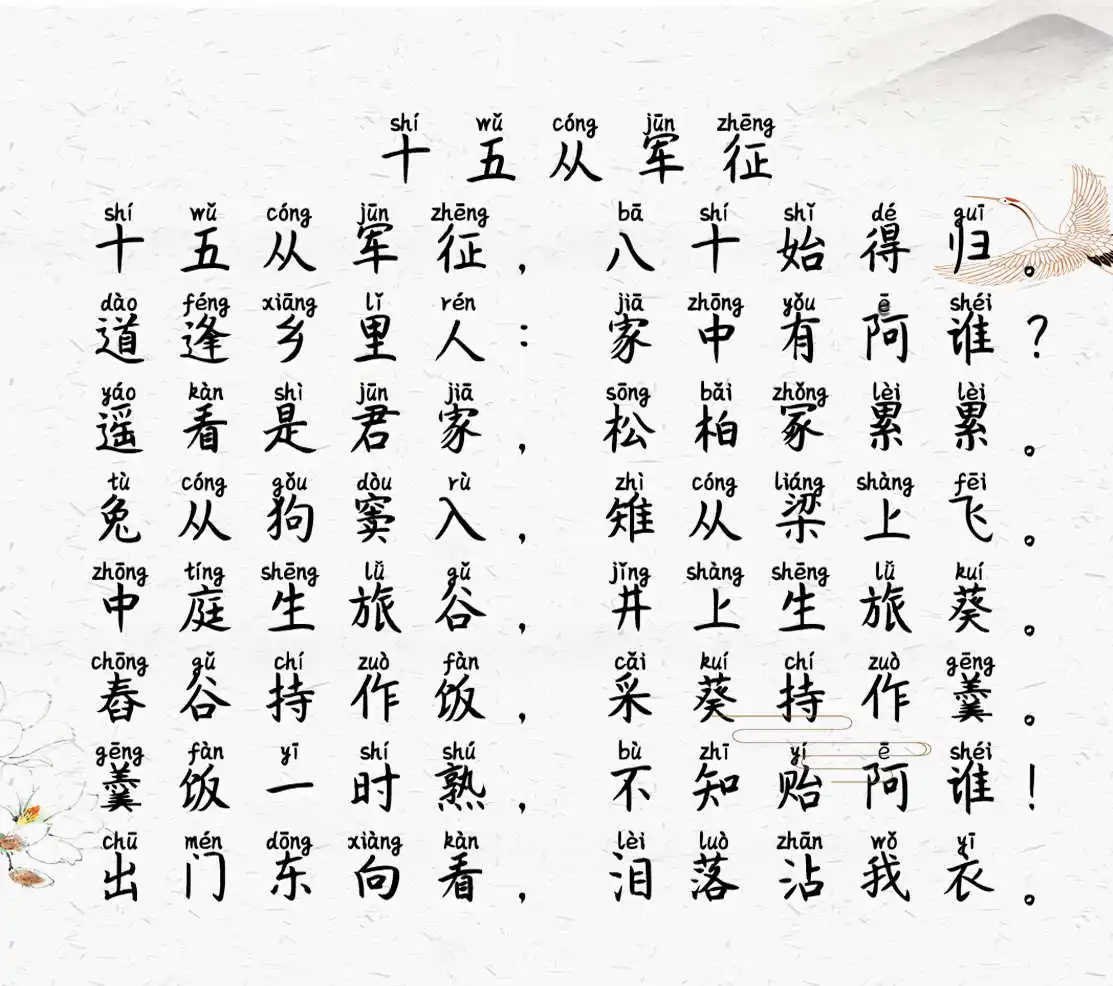 shí wǔ cóng jūn zhēng
十五从军征
shí wǔ cóng jūn zhēng bā shí shǐ dé guī
十五从军征，八十始得归。
dào féng xiāng lǐ rén jiā zhōng yǒu ē shéi
道逢乡里人：家中有阿谁？
yáo kàn shì jūn jiā sōng bǎi zhǒng lèi lèi
遥看是君家，松柏冢累累。
tù cóng gǒu dòu rù zhì cóng liáng shàng fēi
兔从狗窦入，雉从梁上飞。
zhōng tíng shēng lǚ gǔ jǐng shàng shēng lǚ kuí
中庭生旅谷，井上生旅葵。
chōng gǔ chí zuò fàn cǎi kuí chí zuò gēng
舂谷持作饭，采葵持作羹。
gēng fàn yī shí shú bù zhī yí ē shéi
羹饭一时熟，不知贻阿谁！
chū mén dōng xiàng kàn lèi luò zhān wǒ yī
出门东向看，泪落沾我衣。